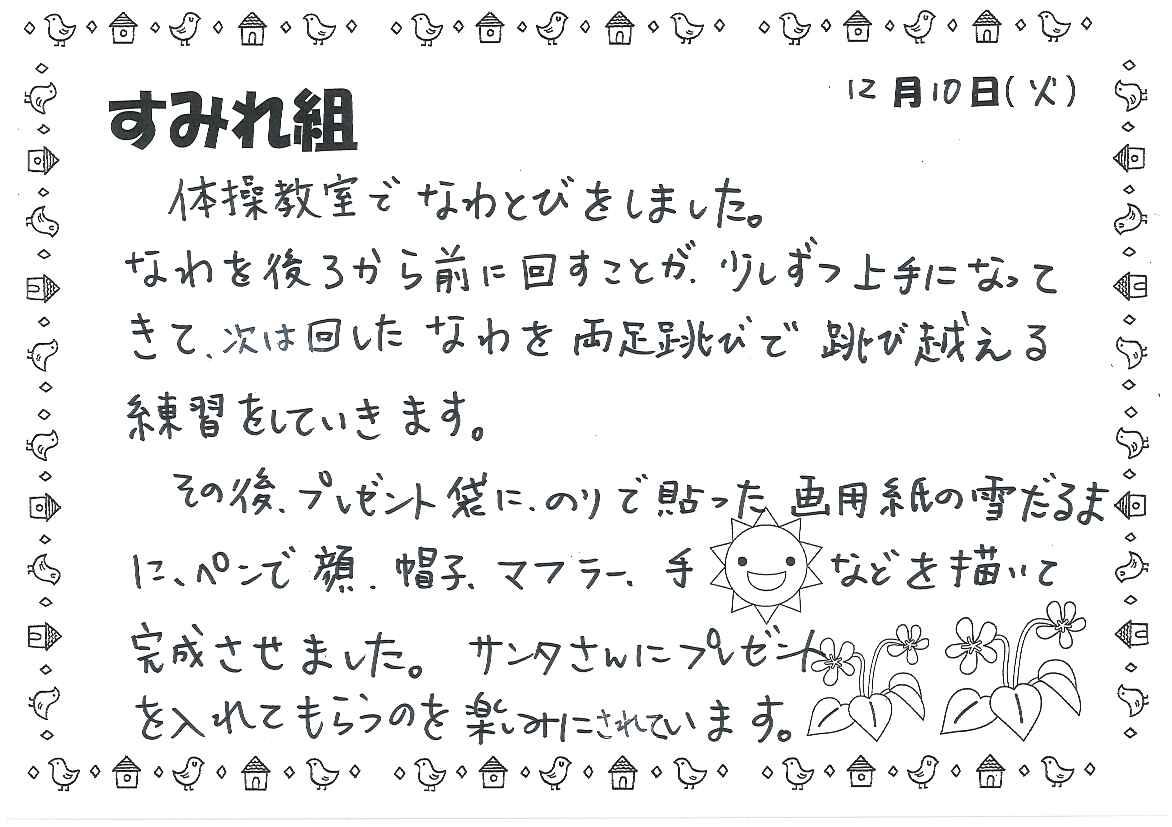 12月10日(火)
すみれ組
体操教室でなわとびをしました。
なわを後ろから前に回すことが、少しずつ上手になって
きて、次は回したなわを両足跳びで跳び越える
練習をしていきます。
その後、プレゼント袋に、のりで貼った画用紙の雪だるま
に、ペンで顔、帽子、マフラー、手などを描いて
完成させました。サンタさんにプレゼント
を入れてもらうのを楽しみにされています。